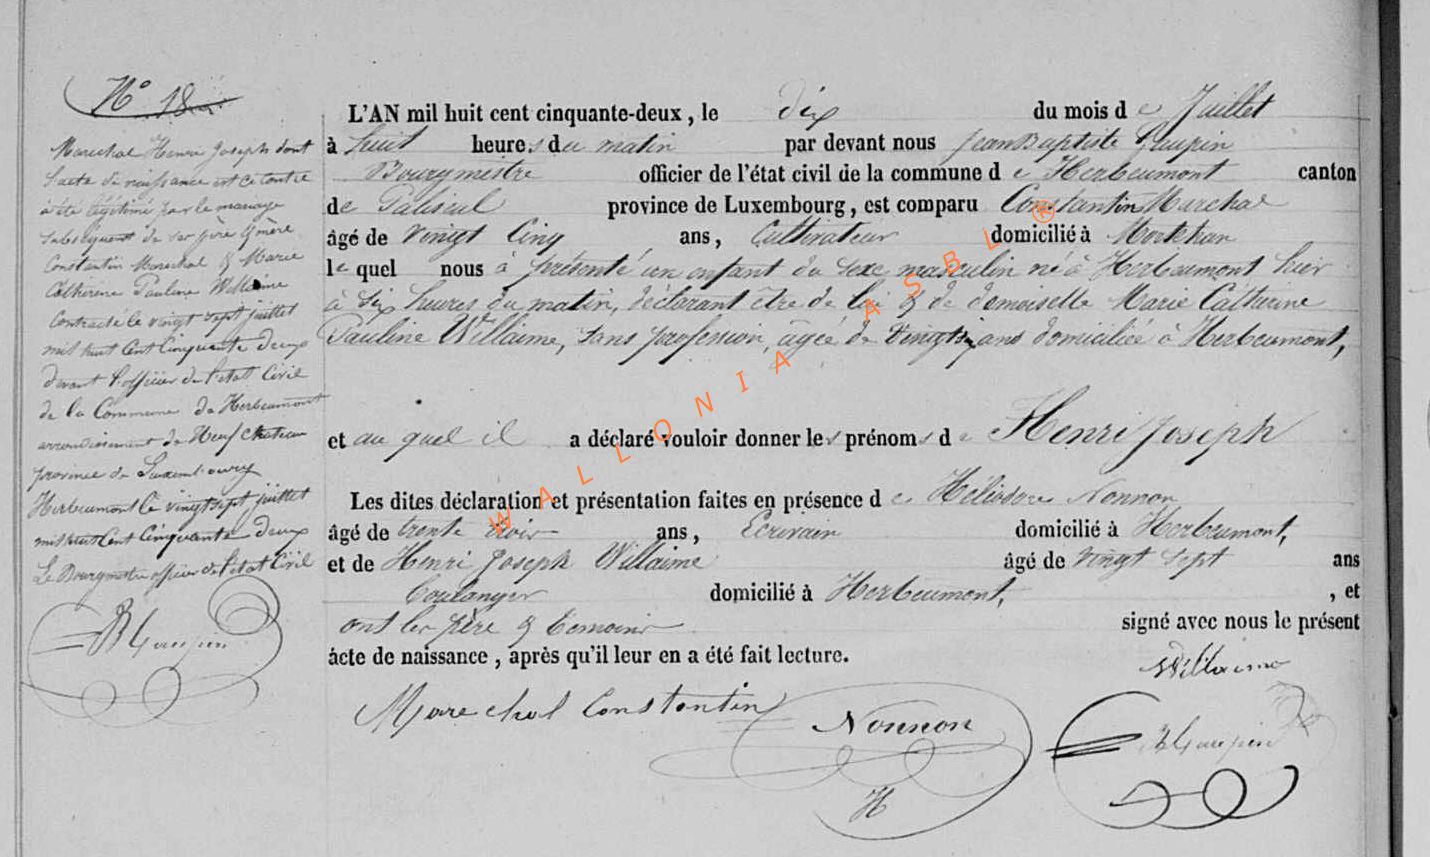 N° 18
Marechal Henri Joseph dont
l'acte de naissance est ci contre
à été légitimé par le mariage
subséquent de ses père & mère
Constantin Marechal & Marie
Catherine Pauline Willaime
Contracté le vingt sept juillet
mil huit Cent Cinquante deux
devant l'officier de l'état Civil
de la Commune de Herbeumont
arrondissement de Neufchateau
province de Luxembourg
Herbeumont le vingt sept juillet
mil huit Cent Cinquante deux
Le Bourgmestre officier de l'état Civil
L'AN mil huit cent cinquante-deux, le dix du mois de Juillet
à huit heures du matin par devant nous Jean Baptiste
Bourgmestre officier de l'état civil de la commune de Herbeumont canton
de Paliseul province de Luxembourg, est comparu Constantin Marechal
âgé de vingt Cinq ans, Cultivateur domicilié à
lequel nous à présenté un enfant du sexe masculin né à Herbeumont hier
à dix heures du matin, déclarant être de lui & de demoiselle Marie Catherine
Pauline Willaime, sans profession, agée de ans domiciliée à Herbeumont,
et au quel il a déclaré vouloir donner les prénoms de Henri Joseph
Les dites déclaration et présentation faites en présence de Héliodore Nonnon
âgé de trente trois ans, Ecrivain domicilié à Herbeumont,
et de Henri Joseph Willaime âgé de vingt sept ans
boulanger domicilié à Herbeumont, , et
ont les père & temoins signé avec nous le présent
acte de naissance, après qu'il leur en a été fait lecture.
Willaime
Marechal Constantin
Nonnon
H
WALLONIA ASBL ®